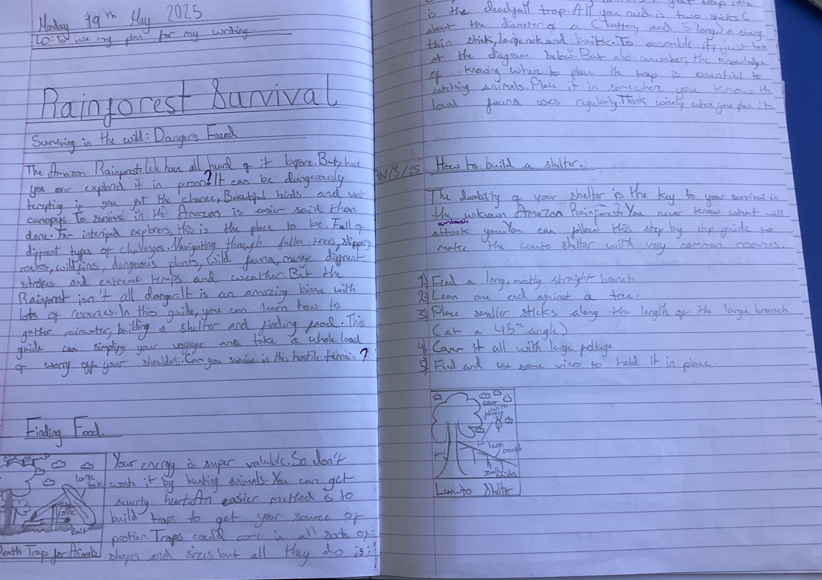 Monday 19th May 2025
LO: To use my plan for my writing
Rainforest Survival
Surviving in the wild: Dangers Faced
The Amazon Rainforest. We have all heard of it before. But, have
you ever explord it in person? It can be dangerously
tempting if you got the chance. Beautiful birds and vast
canopys. To survive in the Amazon is easier said than
done. For interped explorers, this is the place to be. Full of
diffrent types of challenges. Navigating through fallen trees, slippery
routes, wildfires, dangerous plants, wild fauna, many diffrent
and extreme temps and weather. But the
Rainforest isn't all danger. It is an amazing biome with
lots of resources. In this guide, you can learn how to
gather rainwater, building a shelter and finding food. This
guide can simplify your voyage and take a whole load
of worry off your shoulders. Can you survive in this hostile ?
Finding Food.
large
bait
Death Trap for Animals
Your energy is super valuble. So don't
it by hunting animals. You can get
hurt. An easier method is to
build traps to get your source of
protien. Traps could come in all sorts of
shapes and sizes but all they do is
is the deadfall trap. All you need is two sticks (
about the diameter of a C battery and 5 long) a strong
thin stick, large rock and bait. To assemble it, just look
at the diagram below. But also remember, the knowledge
of knowing where to place the trap is essential to
catching animals. Place it in somewhere you know the
local fauna uses regularly. Think wisely when you place it
21/5/25
How to build a shelter.
The durability of your shelter is the key to your survival in
the unknown Amazon Rainforest. You never know what will
ambush
attack you. You can follow this step by step guide to
make the leanto shelter with very common resources.
1) Find a long, mostly straight branch
2) Lean one end against a tree.
3) Place smaller sticks along the length of the large branch
(at a 45° angle)
4) Cover it all with large foliage
5) Find and use some vines to hold it in place.
large
Lean-to Shelter